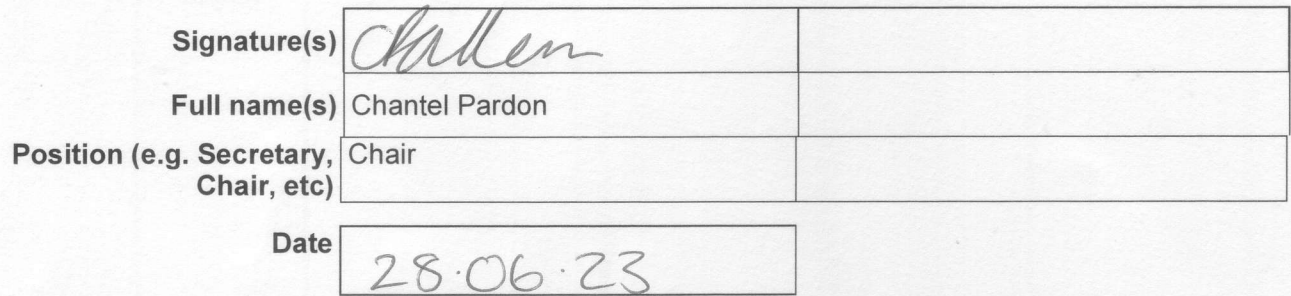 Signature(s)
Full name(s) Chantel Pardon
Position (e.g. Secretary, Chair
Chair, etc)
Date 28.06.23